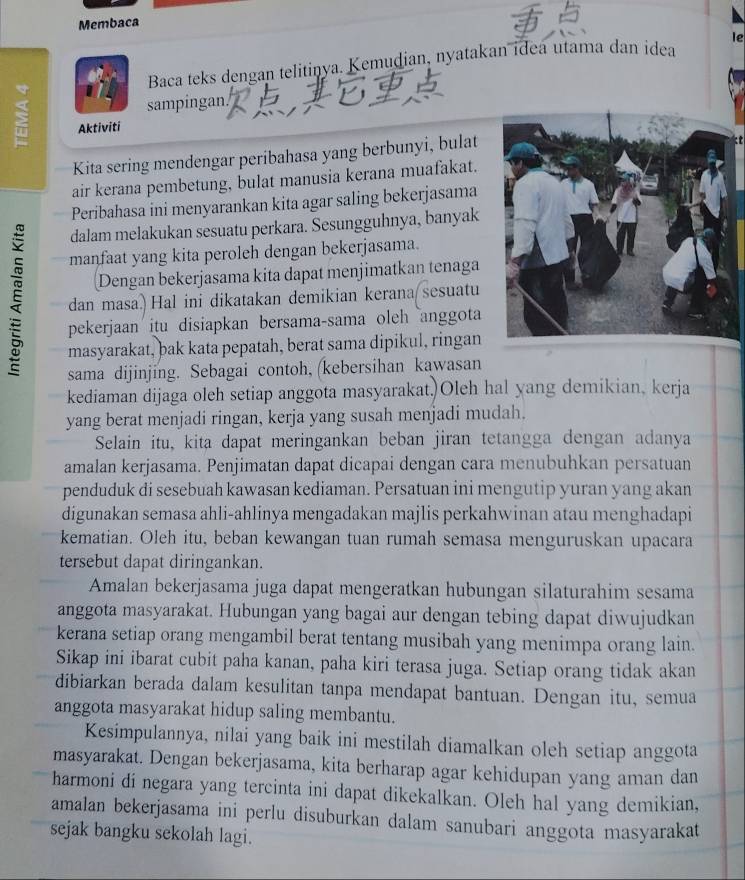 Membaca
重点
le
Baca teks dengan telitinya. Kemudian, nyatakan idea utama dan idea
sampingan.
点,其它重点
TEMA 4
Aktiviti
Integriti Amalan Kita
Kita sering mendengar peribahasa yang berbunyi, bulat
air kerana pembetung, bulat manusia kerana muafakat.
Peribahasa ini menyarankan kita agar saling bekerjasama
dalam melakukan sesuatu perkara. Sesungguhnya, banyak
manfaat yang kita peroleh dengan bekerjasama.
(Dengan bekerjasama kita dapat menjimatkan tenaga
dan masa.) Hal ini dikatakan demikian kerana (sesuatu
pekerjaan itu disiapkan bersama-sama oleh anggota
masyarakat,) bak kata pepatah, berat sama dipikul, ringan
sama dijinjing. Sebagai contoh, (kebersihan kawasan
kediaman dijaga oleh setiap anggota masyarakat.) Oleh hal yang demikian, kerja
yang berat menjadi ringan, kerja yang susah menjadi mudah.
Selain itu, kita dapat meringankan beban jiran tetangga dengan adanya
amalan kerjasama. Penjimatan dapat dicapai dengan cara menubuhkan persatuan
penduduk di sesebuah kawasan kediaman. Persatuan ini mengutip yuran yang akan
digunakan semasa ahli-ahlinya mengadakan majlis perkahwinan atau menghadapi
kematian. Oleh itu, beban kewangan tuan rumah semasa menguruskan upacara
tersebut dapat diringankan.
Amalan bekerjasama juga dapat mengeratkan hubungan silaturahim sesama
anggota masyarakat. Hubungan yang bagai aur dengan tebing dapat diwujudkan
kerana setiap orang mengambil berat tentang musibah yang menimpa orang lain.
Sikap ini ibarat cubit paha kanan, paha kiri terasa juga. Setiap orang tidak akan
dibiarkan berada dalam kesulitan tanpa mendapat bantuan. Dengan itu, semua
anggota masyarakat hidup saling membantu.
Kesimpulannya, nilai yang baik ini mestilah diamalkan oleh setiap anggota
masyarakat. Dengan bekerjasama, kita berharap agar kehidupan yang aman dan
harmoni di negara yang tercinta ini dapat dikekalkan. Oleh hal yang demikian,
amalan bekerjasama ini perlu disuburkan dalam sanubari anggota masyarakat
sejak bangku sekolah lagi.